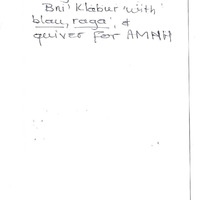 Bni' Klabur 'with'
blau, raga', &
quiver for AMNH